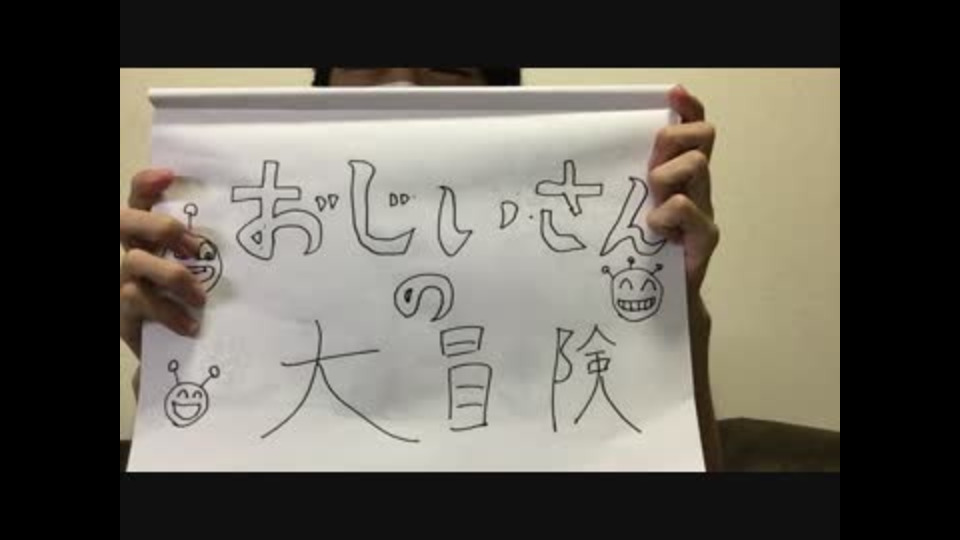 おじいさん
の
大冒険